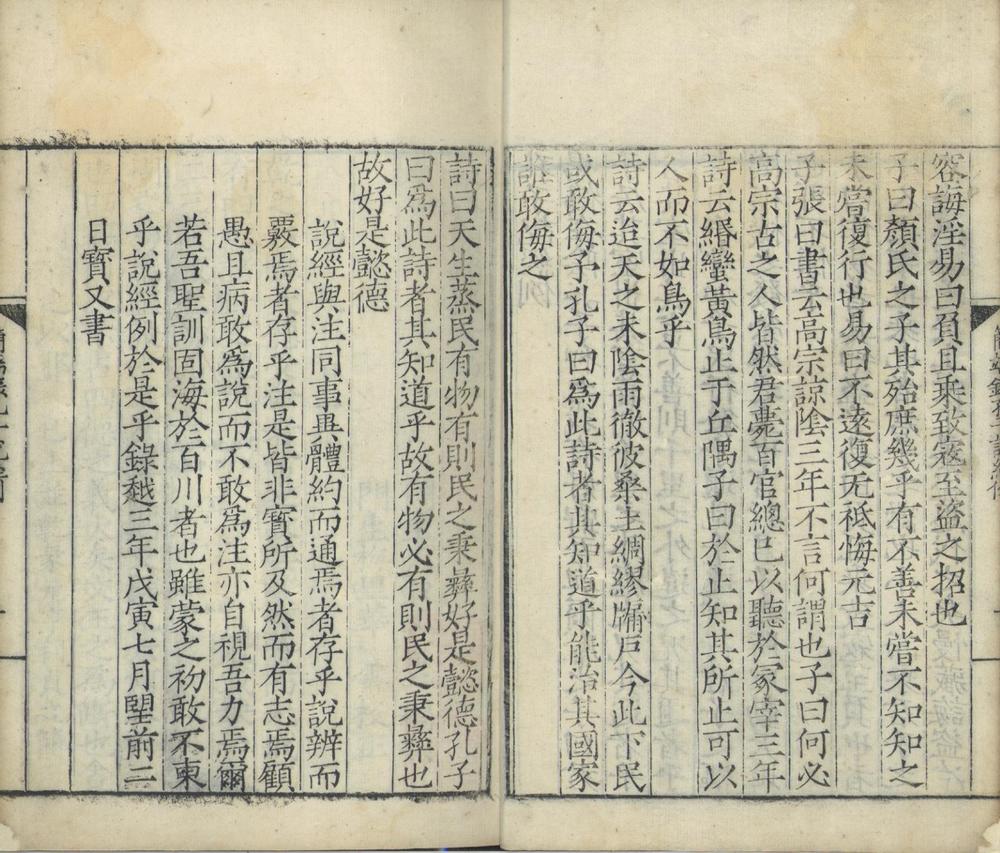 容誨淫易曰負且乘致寇至盜之招也
子曰顏氏之子其殆庶幾乎有不善未嘗不知知之
未嘗復行也易曰不遠復无祗悔元吉
子張曰書云高宗諒陰三年不言何謂也子曰何必
高宗古之人皆然君薨百官總已以聽於冢宰三年
詩云緡蠻黃鳥止于丘隅子曰於止知其所止可以
人而不如鳥乎
詩云迨天之未陰雨徹彼桑土綢繆牖戶今此下民
或敢侮予孔子曰爲此詩者其知道乎能治其國家
誰敢侮之
詩曰天生蒸民有物有則民之秉彝好是懿德孔子
曰爲此詩者其知道乎故有物必有則民之秉彝也
故好是懿德
說經與注同事異體約而通焉者存乎說辨而
覈焉者存乎注是皆非寶所及然而有志焉顧
愚且病敢爲說而不敢爲注亦自視吾力焉爾
若吾聖訓固海於百川者也雖蒙之初敢不東
乎說經例於是乎錄越三年戊寅七月朢前二
日寶又書